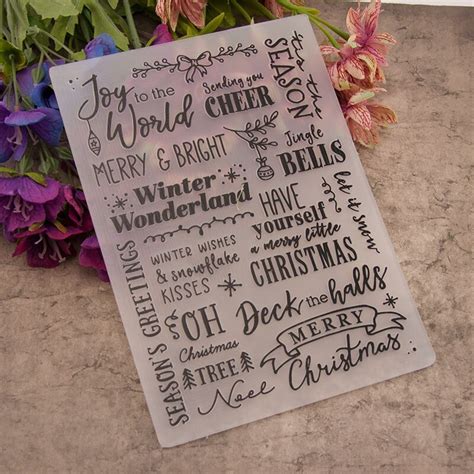 Joy to the World
Sending you
CHEER
it's the
SEASON
MERRY & BRIGHT
Jingle
BELLS
Winter
Wonderland
HAVE
yourself
a merry little
CHRISTMAS
let it snow
WINTER WISHES
& snowflake
KISSES
SEASON'S GREETINGS
OH
Christmas
TREE
Deck the halls
MERRY
Christmas
Noel